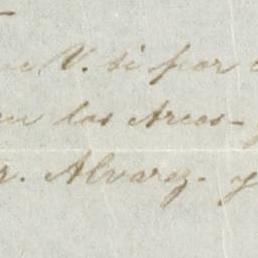 V. si por
en los Arcos-
r. Alvarez. y